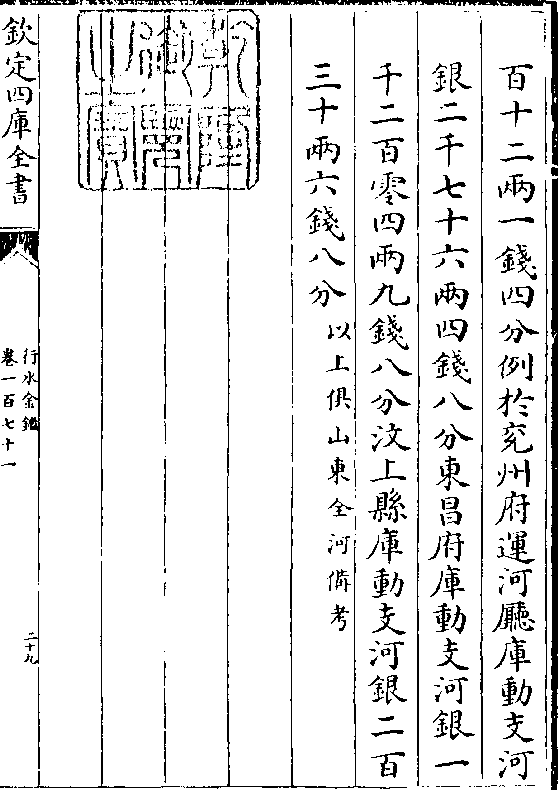 百十二兩一錢四分例於兖州府運河廳庫動支河
銀二千七十六兩四錢八分東昌府庫動支河銀一
千二百零四兩九錢八分汶上縣庫動支河銀二百
三十兩六錢八分以上俱山東全河備考
乾隆御覽之寳
欽定四庫全書
行水金鑑
卷一百七十一
二十九